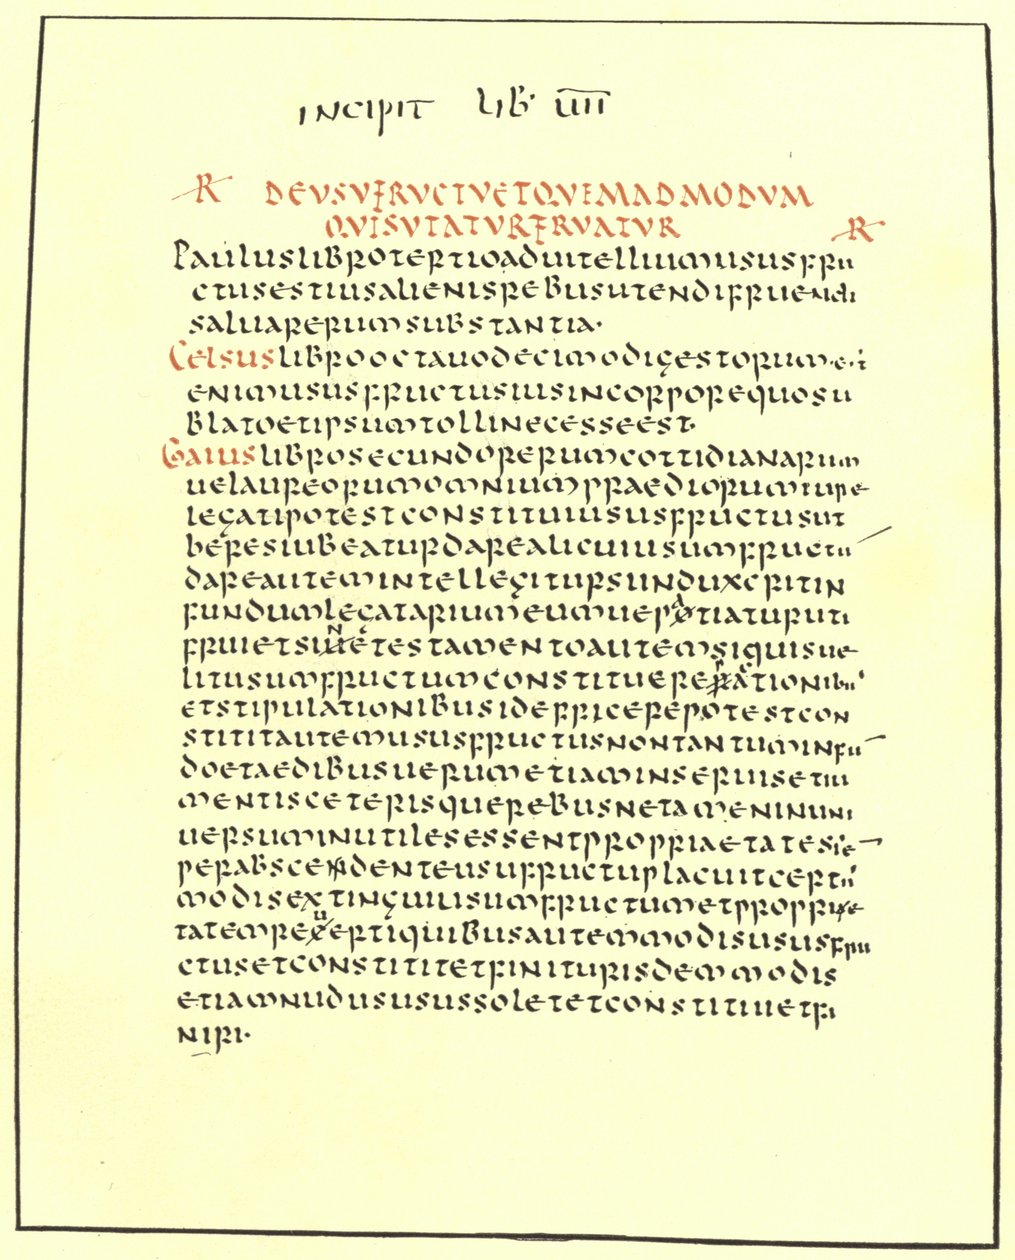 INCIPIT LIB· IIII
R DEUSUFRUCTUETQUEMADMODUM
QUISUTATURFRUATUR R
PAULUSLIBROTERTIOADUITELLIUMUSUSFRU
CTUSESTIUSALIENISREBUSUTENDIFRUENDI
SALUARERUMSUBSTANTIA·
CELSUSLIBROOCTAUODECIMODIGESTORUM·E·T
ENIMUSUSFRUCTUSIUSINCORPOREQUOSU
BLATOETIPSUMTOLLINECESSEEST·
GAIUSLIBROSECUNDORERUMCOTTIDIANARUM
UELAUREORUMOMNIUMPRAEDIORUMIURE
LEGATIPOTESTCONSTITUIUSUSFRUCTUSUT
HERESIUBEATURDAREALICUIUSUMFRUCTU
DAREAUTEMINTELLEGITURSIINDUXERITIN
FUNDUMLEGATARIUMEUMUEPATIATURUTI
FRUIETSINETESTAMENTOAUTEMSIQUISUE
LITUSUMFRUCTUMCONSTITUEREPACTIONIBUS
ETSTIPULATIONIBUSIDEFFICEREPOTESTCON
STITITAUTEMUSUSFRUCTUSNONTANTUMINFU
DOETAEDIBUSUERUMETIAMINSERUISETIU
MENTISCETERISQUEREBUSNETAMENINUNI
UERSUMINUTILESESSENTPROPRIAETATESSE
PERABSCEDENTEUSUFRUCTUPLACUITCERTIS
MODISEXTINGUIUSUMFRUCTUMETPROPRIE
TATEMREUERTIQUIBUSAUTEMMODISUSUSFRU
CTUSETCONSTITITETFINITURISDEMMODIS
ETIAMNUDUSUSUSSOLETETCONSTITUIETFI
NIRI·